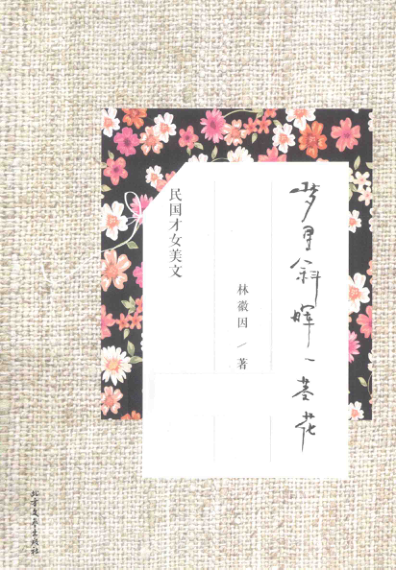 梦里斜晖一茎花
林徽因／著
民国才女美文
北京文艺出版社